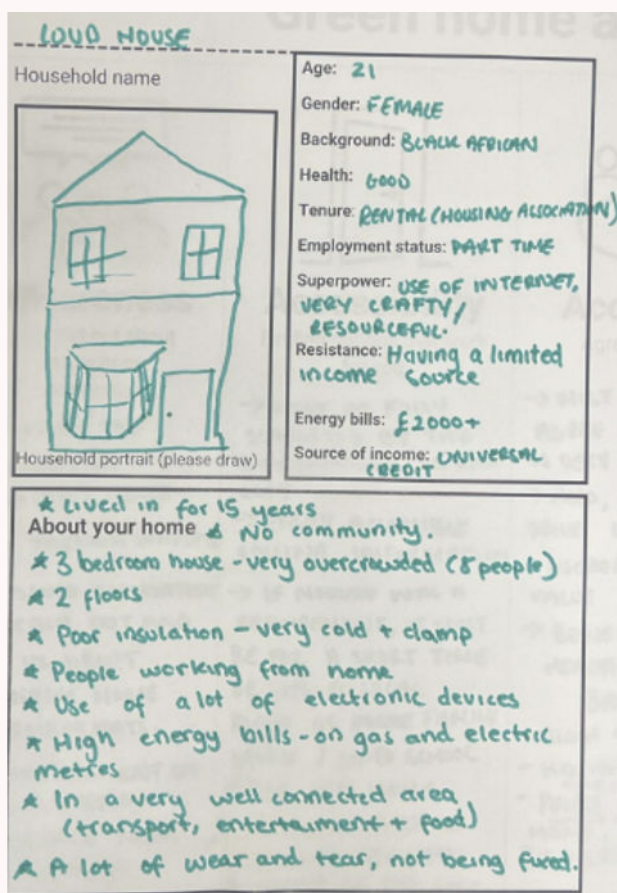 LOUD HOUSE
Household name
Household portrait (please draw)
Age: 21
Gender: FEMALE
Background: BLACK AFRICAN
Health: GOOD
Tenure: RENTAL (HOUSING ASSOCIATION)
Employment status: PART TIME
Superpower: USE OF INTERNET,
VERY CRAFTY/
RESOURCEFUL.
Resistance: Having a limited
income source
Energy bills: £2000+
Source of income: UNIVERSAL
CREDIT
* Lived in for 15 years
About your home * No community.
* 3 bedroom house - very overcrowded (8 people)
* 2 floors
* Poor insulation - very cold + damp
* People working from home
* Use of a lot of electronic devices
* High energy bills - on gas and electric
metres
* In a very well connected area
(transport, entertaiment + food)
* A lot of wear and tear, not being fixed.